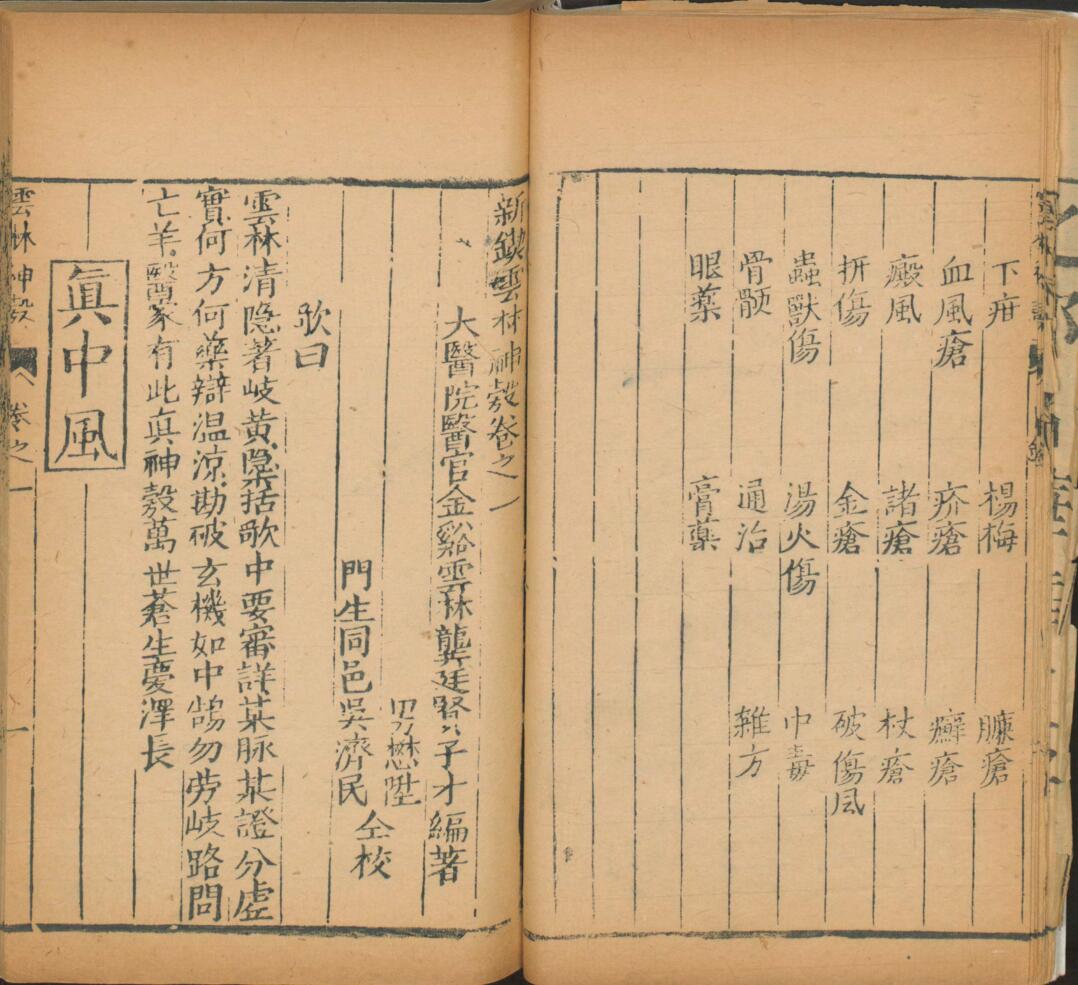 下疳 楊梅 臁瘡
血風瘡 疥瘡 癬瘡
癜風 諸瘡 杖瘡
折傷 金瘡 破傷風
蟲獸傷 湯火傷 中毒
骨骾 通治 雜方
眼藥 膏藥
新鍥雲林神彀卷之一
大醫院醫官金谿雲林龔廷賢子才編著
男懋陞
門生同邑吳濟民
仝校
歌曰
雲林清隐著岐黄檃括歌中要審詳某脉某證分虛
實何方何藥辯温涼勘破玄機如中鵠勿劳岐路問
亡羊醫家有此真神彀萬世蒼生慶澤長
眞中風
雲林神彀 卷之一 一